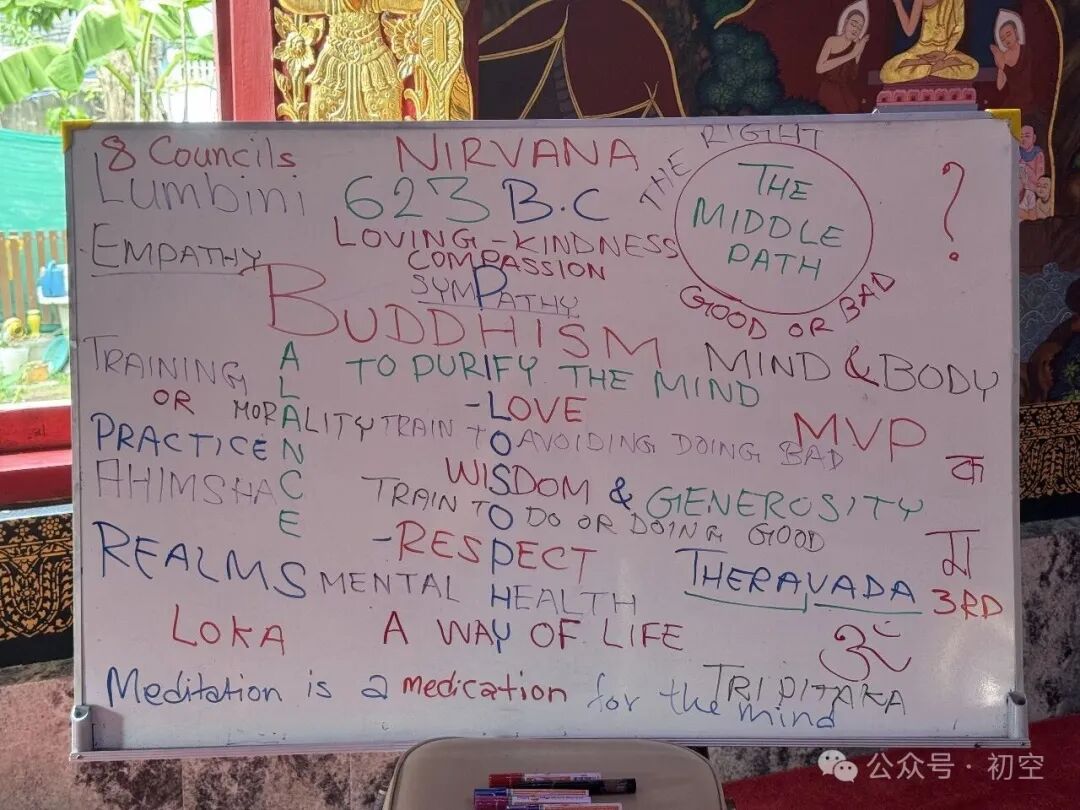 8 Councils NIRVANA THE RIGHT
Lumbini 623 B.C THE MIDDLE PATH ?
EMPATHY LOVING-KINDNESS
COMPASSION
SYMPATHY GOOD OR BAD
BUDDHISM MIND & BODY
TRAINING TO PURIFY THE MIND
OR -LOVE MVP
MORALITY TRAIN TO AVOIDING DOING BAD
PRACTICE
WISDOM & GENEROSITY क
AHIMSHA TRAIN TO DO OR DOING GOOD
BALANCE
PHILOSOPHY
REALMS -RESPECT THERAVADA म
MENTAL HEALTH 3RD
LOKA A WAY OF LIFE ॐ
TRIPITAKA
Meditation is a medication for the mind
公众号·初空